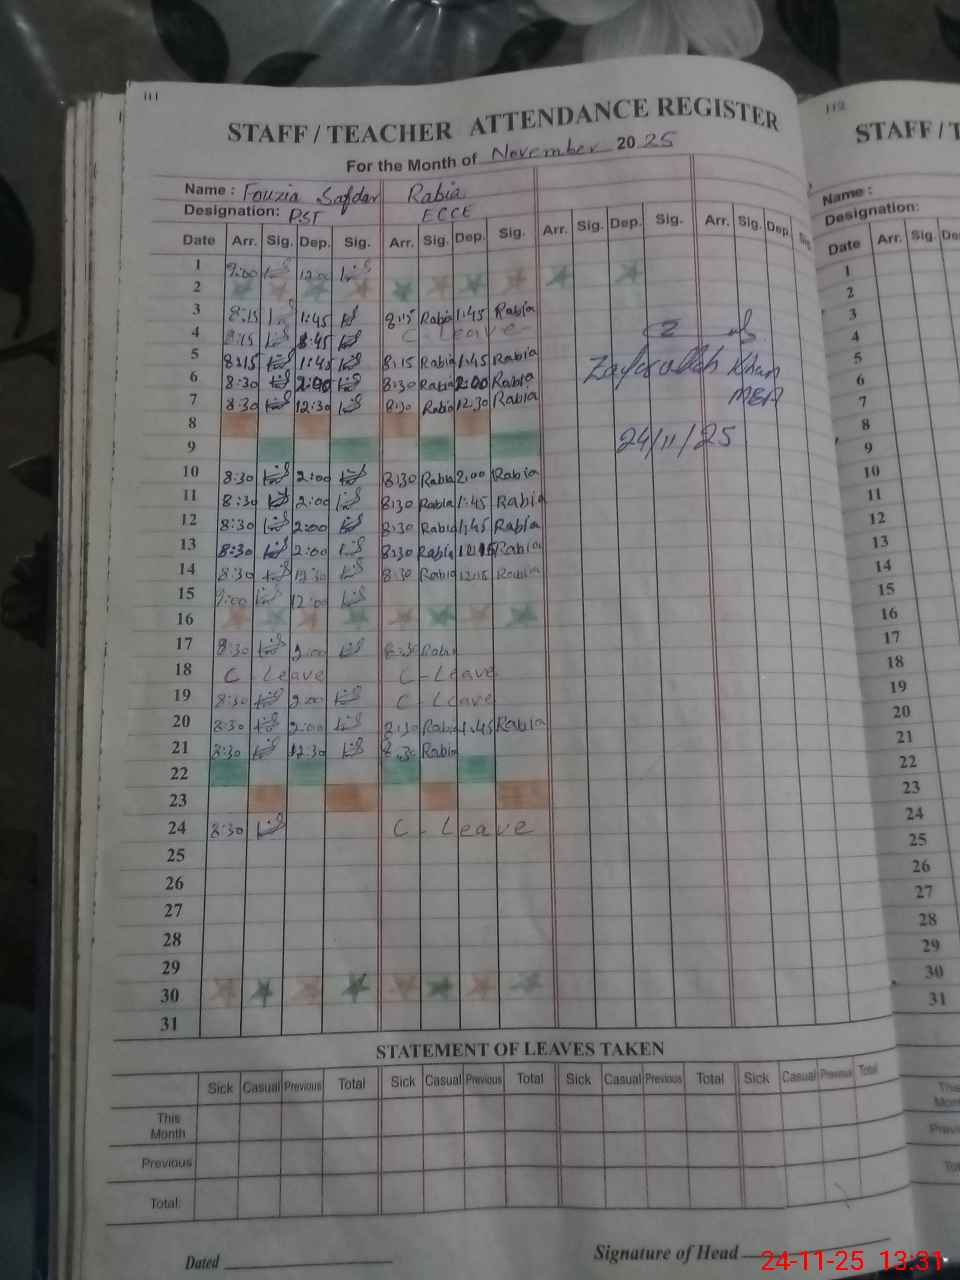 111
STAFF / TEACHER ATTENDANCE REGISTER
For the Month of November 2025
Name : Fouzia Safdar Rabia
Designation: PST ECCE
Date Arr. Sig. Dep. Sig. Arr. Sig. Dep. Sig. Arr. Sig. Dep. Sig. Arr. Sig. Dep. Sig.
1 9:00 12:00
2
3 8:15 1:45 8:15 Rabia 1:45 Rabia
4 8:15 8:45 C - Leave -
5 8:15 1:45 8:15 Rabia 1:45 Rabia
6 8:30 2:00 8:30 Rabia 2:00 Rabia
7 8:30 12:30 8:30 Rabia 12:30 Rabia
8
9
10 8:30 2:00 8:30 Rabia 2:00 Rabia
11 8:30 2:00 8:30 Rabia 1:45 Rabia
12 8:30 2:00 8:30 Rabia 1:45 Rabia
13 8:30 2:00 8:30 Rabia Rabia
14 8:30 12:30 8:30 Rabia 12:15 Rabia
15 9:00 12:00
16
17 8:30 2:00 8:30 Rabia
18 C - Leave C - Leave
19 8:30 2:00 C - Leave
20 8:30 2:00 8:30 Rabia 1:45 Rabia
21 8:30 12:30 8:30 Rabia
22
23
24 8:30 C - Leave
25
26
27
28
29
30
31
Zafarullah Khan
MEA
24/11/25
STATEMENT OF LEAVES TAKEN
Sick Casual Previous Total Sick Casual Previous Total Sick Casual Previous Total Sick Casual Previous Total
This Month
Previous
Total:
Dated
Signature of Head
112
STAFF / T
Name :
Designation:
Date Arr. Sig. De
1
2
3
4
5
6
7
8
9
10
11
12
13
14
15
16
17
18
19
20
21
22
23
24
25
26
27
28
29
30
31
This
Mon
Previ
Tot
24-11-25 13:31